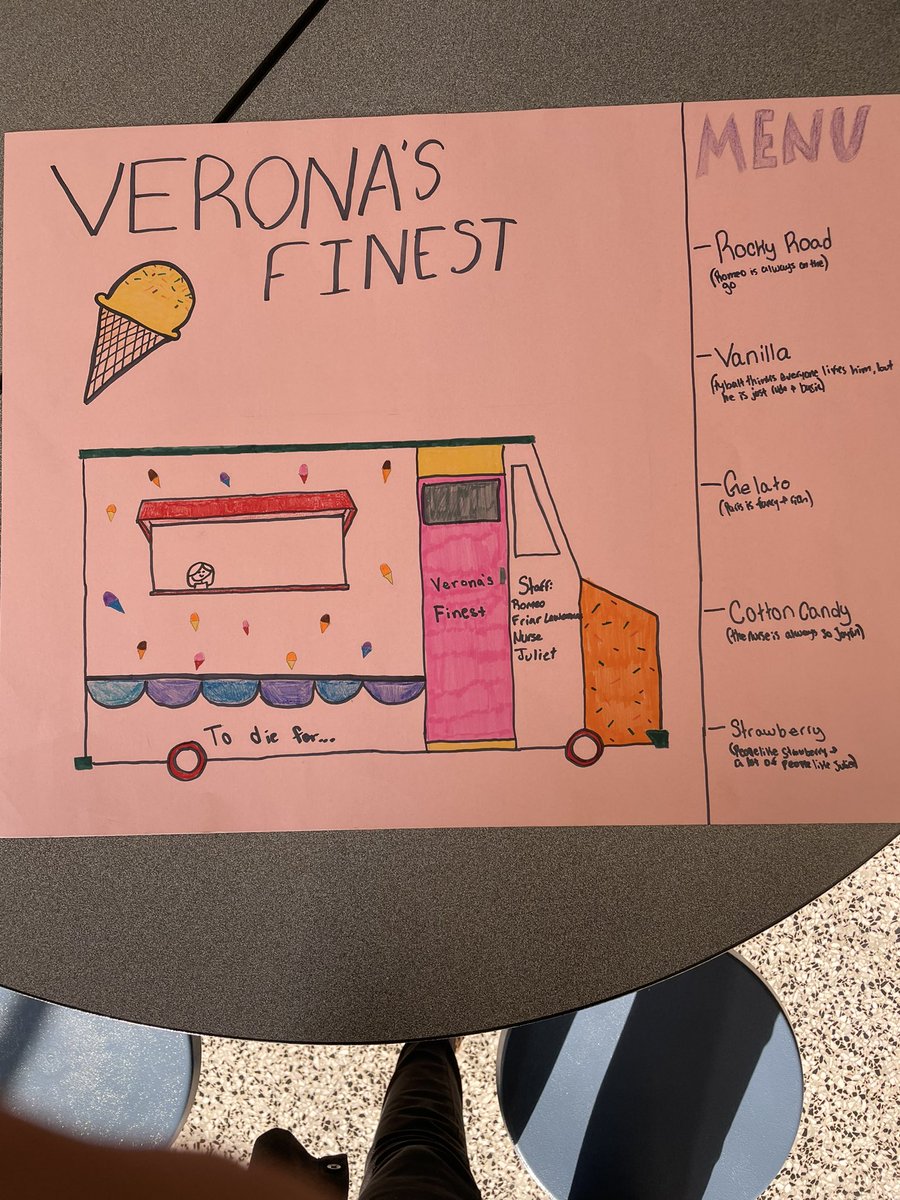 VERONA'S
FINEST
Verona's
Finest
Staff:
Romeo
Friar Lawrence
Nurse
Juliet
To die for...
MENU
- Rocky Road
(Romeo is always on the
go)
- Vanilla
(tybalt thinks everyone likes him, but
he is just rude + basic)
- Gelato
(Paris is fancy + rich)
- Cotton Candy
(the nurse is always so joyful)
- Strawberry
(People like strawberry +
a lot of people like Juliet)